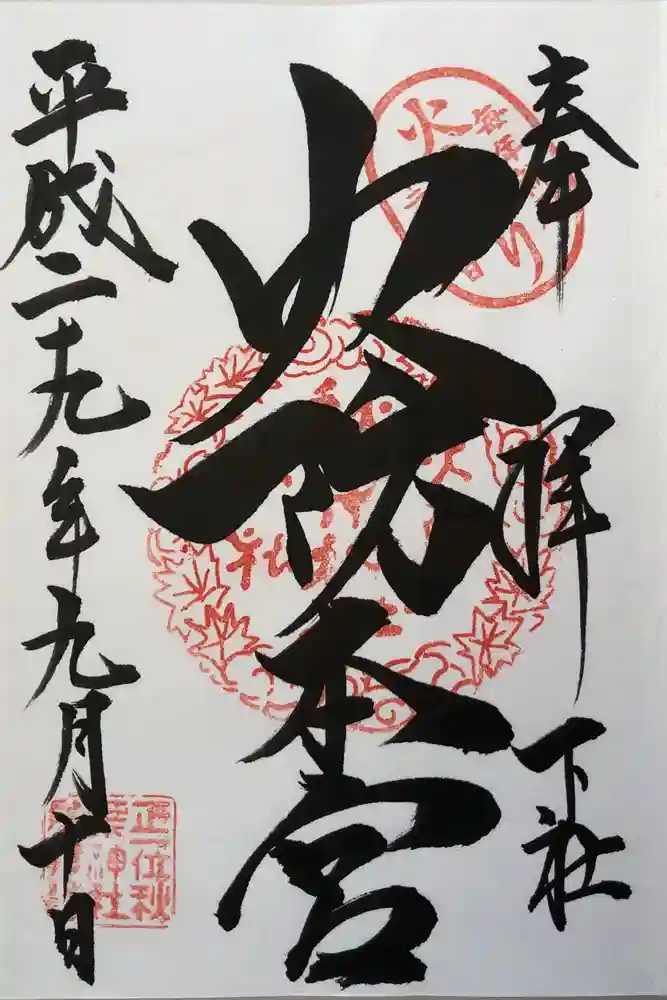 奉拝 下社
火防本宮
平成二十九年九月十日
正一位秋
葉神社